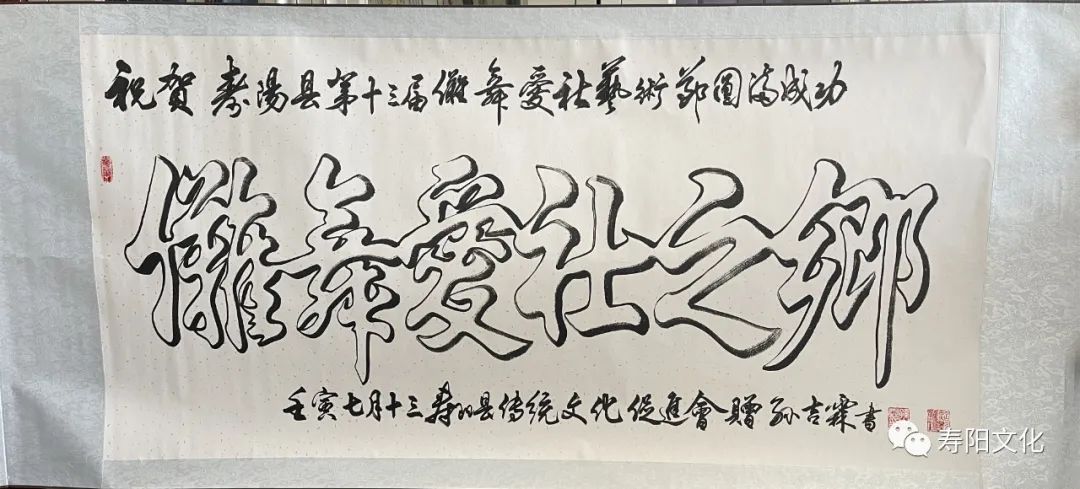 祝贺寿陽县第十三届儺舞愛社藝術節圆满成功
儺舞愛社之鄉
壬寅七月十三寿阳县传统文化促進會贈孙吉霖書
寿阳文化